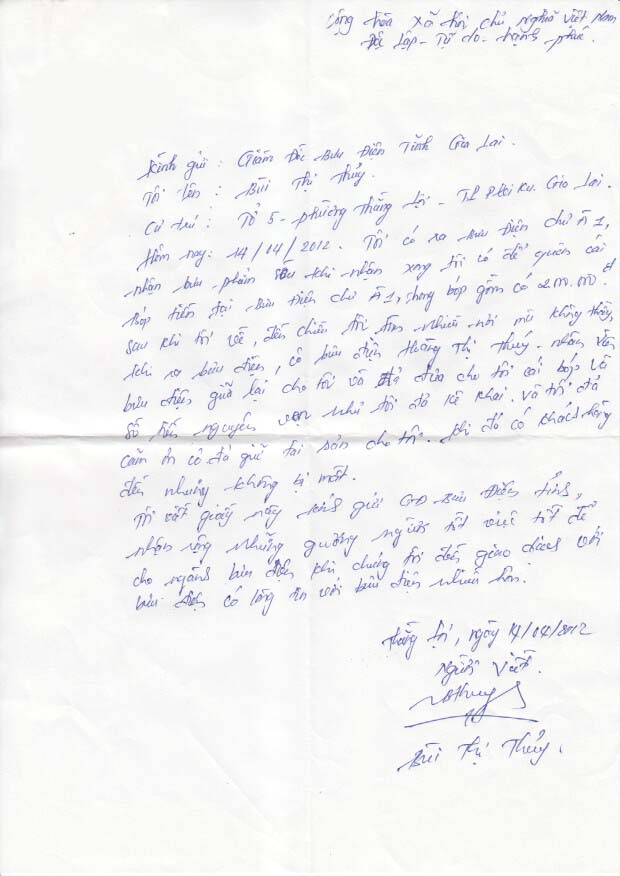 Cộng hòa xã hội chủ nghĩa Việt Nam
Độc lập - Tự do - hạnh phúc.
Kính gửi : Giám Đốc Bưu Điện Tỉnh Gia Lai.
Tôi tên : Bùi Thị Thủy.
Cư trú : Tổ 5 - phường Thắng Lợi - TP Plei Ku. Gia Lai.
Hôm nay : 14/04/2012. Tôi có ra Bưu Điện chư Á 1,
nhận bưu phẩm sau khi nhận xong tôi có để quên cái
bóp tiền tại Bưu Điện chư Á 1, trong bóp gồm có 2.000.000đ
sau khi tôi về, đến chiều tôi tìm nhiều nơi mà không thấy,
khi ra bưu điện, cô bưu điện Hoàng Thị Thúy. nhân viên
bưu điện giữ lại cho tôi và đã đưa cho tôi cái bóp và
số tiền nguyên vẹn như tôi đã kê khai. và tôi đã
cảm ơn cô đã giữ tài sản cho tôi. khi đó có khách hàng
đến nhưng không bị mất.
Tôi viết giấy này kính gửi GĐ Bưu Điện tỉnh,
nhân rộng những gương người tốt việc tốt để
cho ngành bưu điện khi chúng tôi đến giao dịch với
bưu điện có lòng tin với bưu điện nhiều hơn.
Thắng Lợi, ngày 14/04/2012
Người viết.
Bùi Thị Thủy.